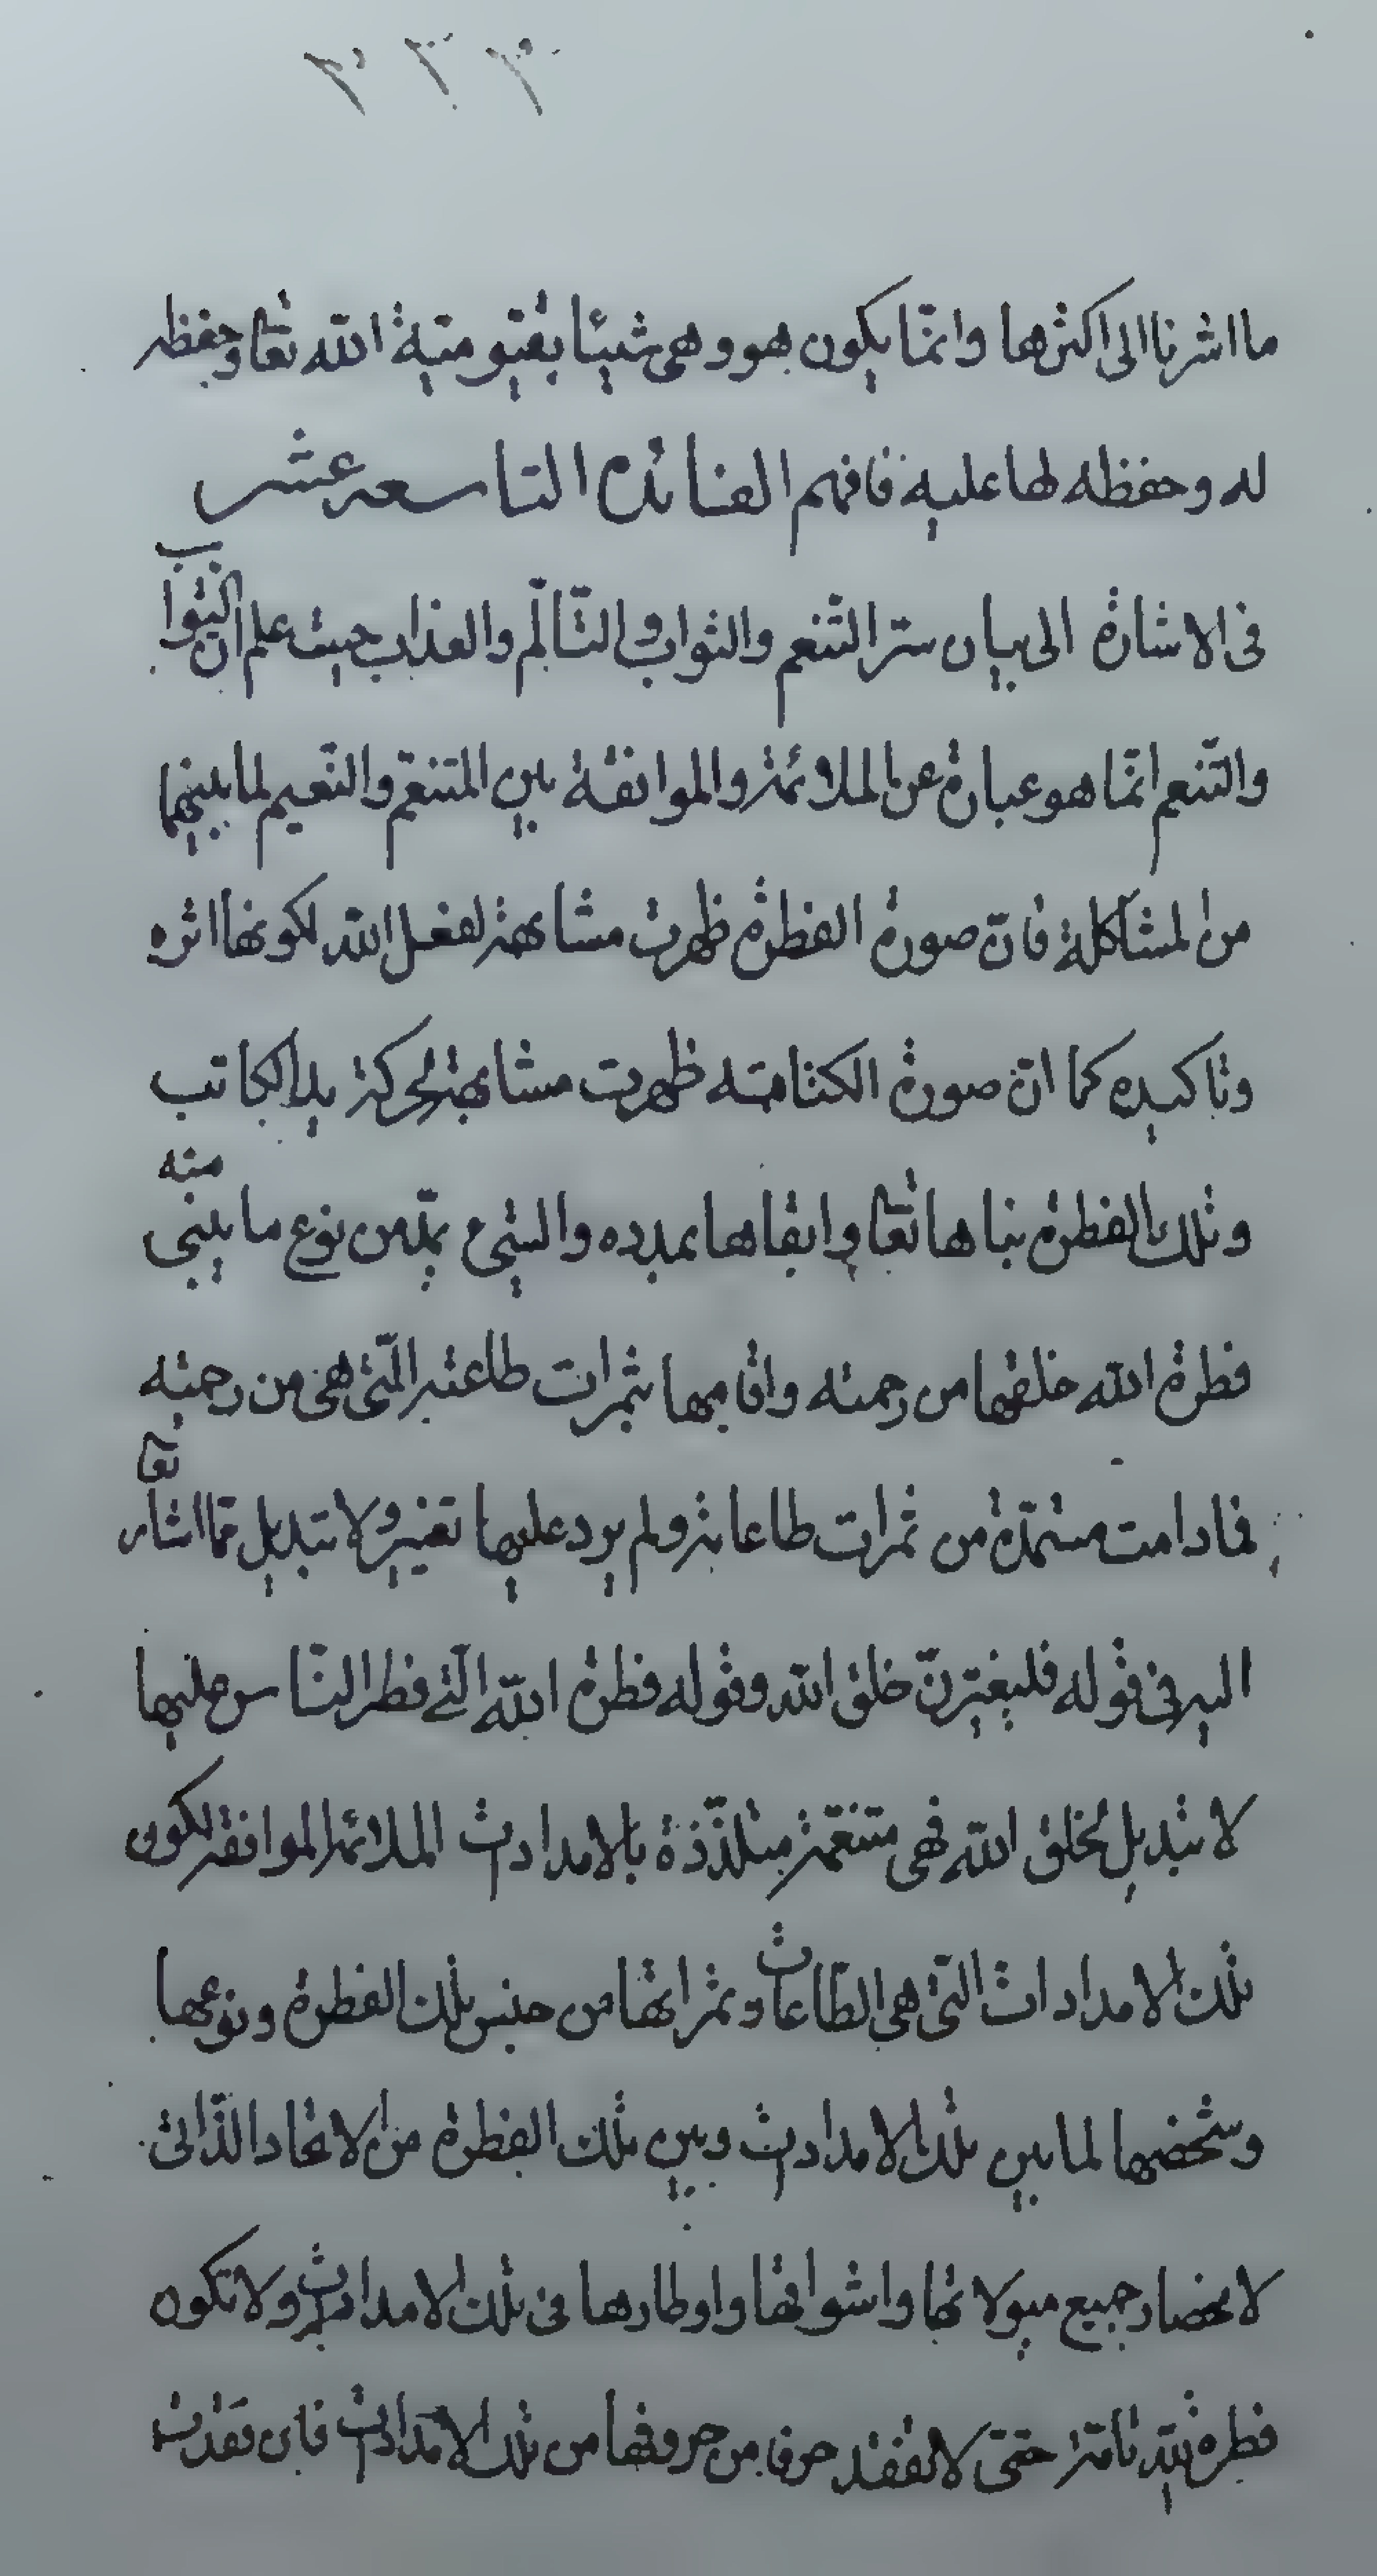 ٢٢٣
ما اشرنا الى اكثرها وانّما يكون هو وهى شيئا بقيّوميّة الله تعا وحفظه
له وحفظه لها عليه فافهم الفائدة التاسعة عشر
فى الاشارة الى بيان سرّ التّنعم والثواب والتّألّم والعذاب حيث علم ان الثواب
والتّنعم انّما هو عبارة عن الملائمة والموافقة بين المتنعّم والنّعيم لما بينهما
من المشاكلة فانّ صورة الفطرة ظهرت مشابهة لفعل الله لكونها اثره
وتاكيده كما انّ صورة الكتابة ظهرت مشابهة لحركة يد الكاتب
وتلك الفطرة بناها تعا وابقاها بمدده والشىء يمدّ من نوع ما بينى منه
فطرة الله خلقها من رحمته واقامها بثمرات طاعته الّتى هى من رحمته
فمادامت مستمدّة من ثمرات طاعاته ولم يرد عليها تغيير ولا تبديل ممّا اشار تعا
اليه فى قوله فليغيّرنّ خلق الله وقوله فطرة الله الّتى فطر النّاس عليها
لا تبديل لخلق الله فهى متنعّمة متلذّذة بالامدادات الملائمة الموافقة لكون
تلك الامدادات الّتى هى الطّاعات وثمراتها من جنس تلك الفطرة ونوعها
وشخصها لما بين تلك الامدادات وبين تلك الفطرة من الاتحاد الذّاتى
لانحصار جميع ميولاتها واشواقها واوطارها فى تلك الامدادات ولا تكون
فطرة الله تامّة حتّى لا تفقد حرفا من حروفها من تلك الامدادات فان فقدت